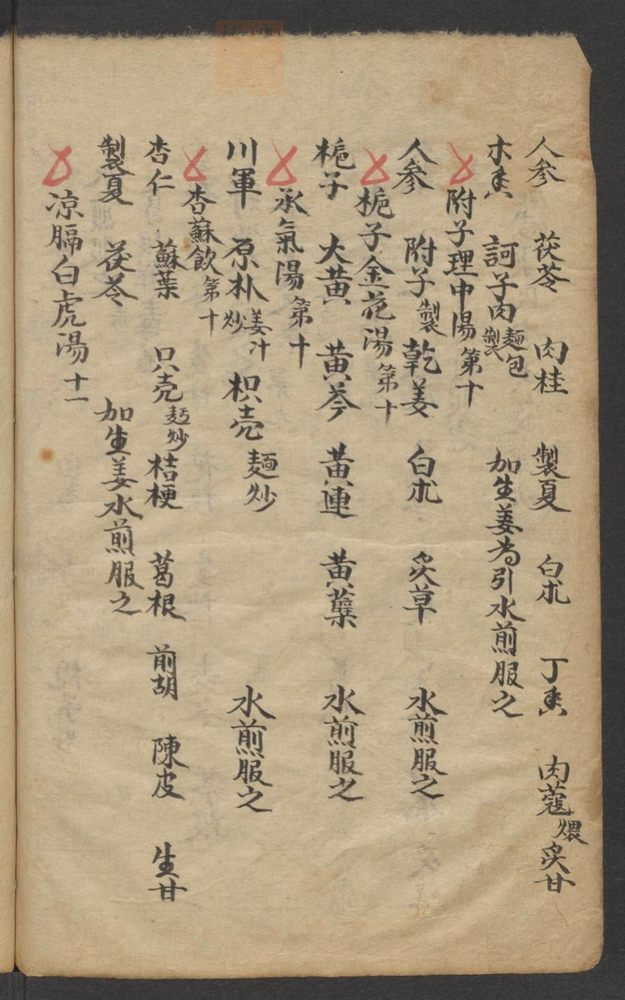 人参 茯苓 肉桂 製夏 白朮 丁香 肉蔻煨 炙甘
木香 訶子肉麺包製 加生姜為引水煎服之
附子理中湯第十
人参 附子製 乾姜 白朮 炙草 水煎服之
梔子金花湯第十
梔子 大黄 黄芩 黄連 黄蘗 水煎服之
承氣湯第十
川軍 原朴姜汁炒 枳壳麺炒 水煎服之
杏蘇飲第十
杏仁 蘇葉 只壳麺炒 桔梗 葛根 前胡 陳皮 生甘
製夏 茯苓 加生姜水煎服之
凉膈白虎湯十一